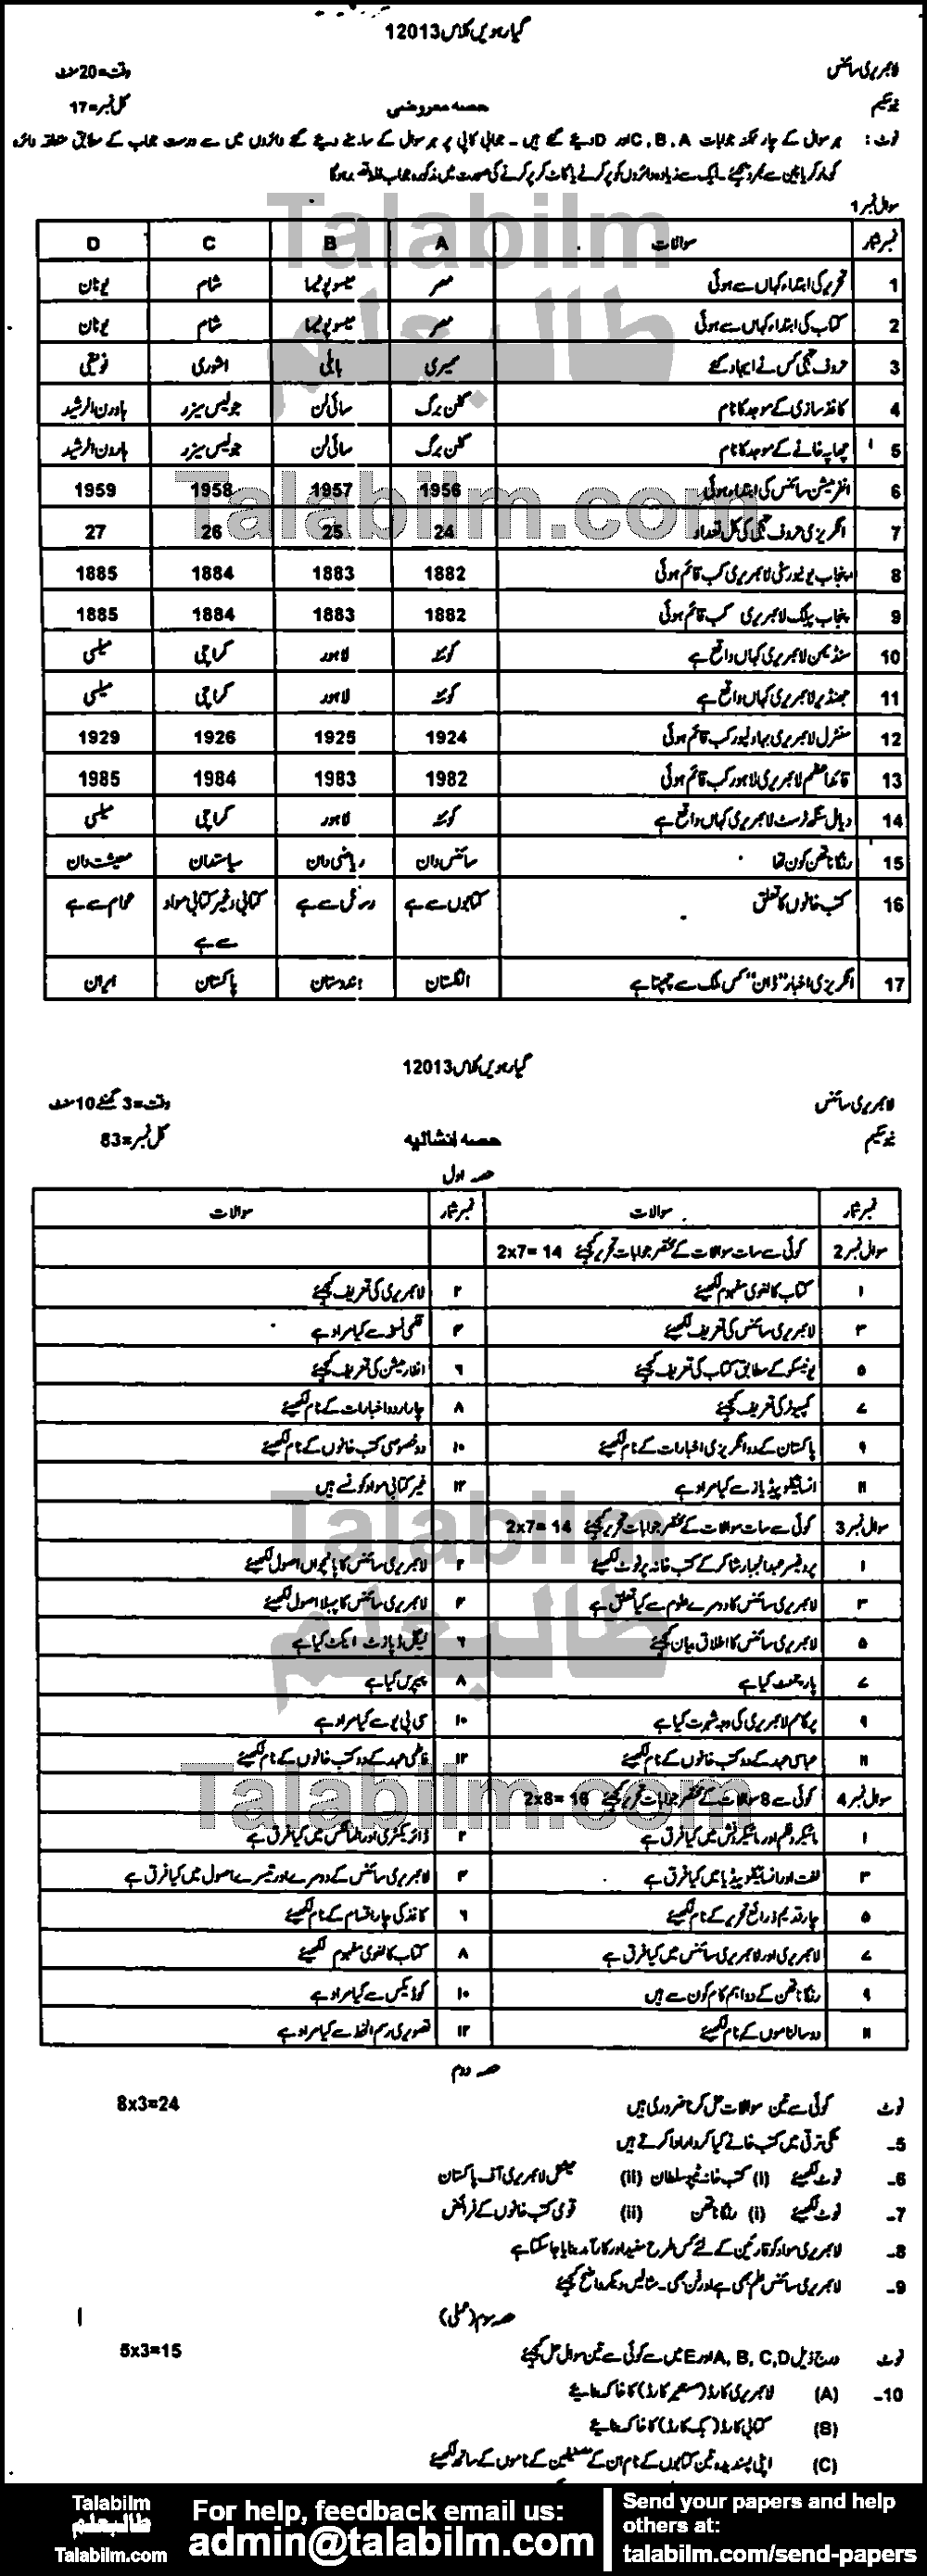 گیارہویں کلاس 12013
لائبریری سائنس
وقت=20 منٹ
نیو سکیم
حصہ معروضی
کل نمبر=17
نوٹ: ہر سوال کے چار ممکنہ جوابات C, B, A اور D دیئے گئے ہیں۔ جوابی کاپی پر ہر سوال کے سامنے دیئے گئے دائروں میں سے درست جواب کے مطابق متعلقہ دائرہ
کو مارکر یا پین سے بھر دیجئے۔ ایک سے زیادہ دائروں کو پر کرنے یا کاٹ کر پر کرنے کی صورت میں مذکورہ جواب غلط تصور ہوگا
سوال نمبر 1
نمبر شمار سوالات A B C D
1 تحریر کی ابتداء کہاں سے ہوئی مصر میسوپوٹیمیا شام یونان
2 کتاب کی ابتداء کہاں سے ہوئی مصر میسوپوٹیمیا شام یونان
3 حروف تہجی کس نے ایجاد کئے سمیری بابلی اشوری فونیقی
4 کاغذ سازی کے موجد کا نام گٹن برگ سائی لن جولیس سیزر ہارون الرشید
5 چھاپہ خانے کے موجد کا نام گٹن برگ سائی لن جولیس سیزر ہارون الرشید
6 انفرمیشن سائنس کی ابتداء ہوئی 1956 1957 1958 1959
7 انگریزی حروف تہجی کی کل تعداد 24 25 26 27
8 پنجاب یونیورسٹی لائبریری کب قائم ہوئی 1882 1883 1884 1885
9 پنجاب پبلک لائبریری کب قائم ہوئی 1882 1883 1884 1885
10 سنڈیمن لائبریری کہاں واقع ہے کوئٹہ لاہور کراچی میلسی
11 جھنڈیر لائبریری کہاں واقع ہے کوئٹہ لاہور کراچی میلسی
12 سنٹرل لائبریری بہاولپور کب قائم ہوئی 1924 1925 1926 1929
13 قائداعظم لائبریری لاہور کب قائم ہوئی 1982 1983 1984 1985
14 دیال سنگھ ٹرسٹ لائبریری کہاں واقع ہے کوئٹہ لاہور کراچی میلسی
15 رنگاناتھن کون تھا سائنس دان ریاضی دان سیاستدان معیشت دان
16 کتب خانوں کا تعلق کتابوں سے ہے رسائل سے ہے کتابی وغیر کتابی مواد سے ہے عوام سے ہے
17 انگریزی اخبار "ڈان" کس ملک سے چھپتا ہے انگلستان ہندوستان پاکستان ایران
گیارہویں کلاس 12013
لائبریری سائنس
وقت=3 گھنٹے 10 منٹ
نیو سکیم
حصہ انشائیہ
کل نمبر=83
حصہ اول
نمبر شمار سوالات نمبر شمار سوالات
سوال نمبر 2 کوئی سے سات سوالات کے مختصر جوابات تحریر کیجئے 2x7= 14
۱ کتاب کا لغوی مفہوم لکھیئے ۲ لائبریری کی تعریف کیجئے
۳ لائبریری سائنس کی تعریف لکھیئے ۴ قلمی نسخہ سے کیا مراد ہے
۵ یونیسکو کے مطابق کتاب کی تعریف کیجئے ۶ انفارمیشن کی تعریف کیجئے
۷ کمپیوٹر کی تعریف کیجئے ۸ چار اردو اخبارات کے نام لکھیئے
۹ پاکستان کے دو انگریزی اخبارات کے نام لکھیئے ۱۰ دو خصوصی کتب خانوں کے نام لکھیئے
۱۱ انسائیکلوپیڈیاز سے کیا مراد ہے ۱۲ غیر کتابی مواد کونسے ہیں
سوال نمبر 3 کوئی سے سات سوالات کے مختصر جوابات تحریر کیجئے 2x7= 14
۱ پروفیسر عبدالجبار شاکر کے کتب خانہ پر نوٹ لکھیئے ۲ لائبریری سائنس کا پانچواں اصول لکھیئے
۳ لائبریری سائنس کا دوسرے علوم سے کیا تعلق ہے ۴ لائبریری سائنس کا پہلا اصول لکھیئے
۵ لائبریری سائنس کا اطلاق بیان کیجئے ۶ لیگل ڈیپازٹ ایکٹ کیا ہے
۷ پارچمنٹ کیا ہے ۸ پیپرس کیا ہے
۹ پرگامم لائبریری کی وجہ شہرت کیا ہے ۱۰ سی پی یو سے کیا مراد ہے
۱۱ عباسی عہد کے دو کتب خانوں کے نام لکھیئے ۱۲ فاطمی عہد کے دو کتب خانوں کے نام لکھیئے
سوال نمبر 4 کوئی سے 8 سوالات کے مختصر جوابات تحریر کیجئے 2x8= 16
۱ مائیکروفلم اور مائیکروفش میں کیا فرق ہے ۲ ڈائریکٹری اور المانکس میں کیا فرق ہے
۳ لغت اور انسائیکلوپیڈیا میں کیا فرق ہے ۴ لائبریری سائنس کے دوسرے اور تیسرے اصول میں کیا فرق ہے
۵ چار قدیم ذرائع تحریر کے نام لکھیئے ۶ کاغذ کی چار اقسام کے نام لکھیئے
۷ لائبریری اور لائبریری سائنس میں کیا فرق ہے ۸ کتاب کا لغوی مفہوم لکھیئے
۹ رنگاناتھن کے دو اہم کام کون سے ہیں ۱۰ کوڈیکس سے کیا مراد ہے
۱۱ دو سالناموں کے نام لکھیئے ۱۲ تصویری رسم الخط سے کیا مراد ہے
حصہ دوم
نوٹ کوئی سے تین سوالات حل کرنا ضروری ہیں 8x3=24
5- ملکی ترقی میں کتب خانے کیا کردار ادا کرتے ہیں
6- نوٹ لکھیئے (i) کتب خانہ ٹیپو سلطان (ii) نیشنل لائبریری آف پاکستان
7- نوٹ لکھیئے (i) رنگاناتھن (ii) قومی کتب خانوں کے فرائض
8- لائبریری مواد کو قارئین کے لئے کس طرح مفید اور کارآمد بنایا جا سکتا ہے
9- لائبریری سائنس علم بھی ہے اور فن بھی۔ مثالیں دیکر واضح کیجئے
حصہ سوم (عملی)
نوٹ درج ذیل A, B, C, D اور E میں سے کوئی سے تین سوال حل کیجئے 5x3=15
10- (A) لائبریری کارڈ (مستعیر کارڈ) کا خاکہ بنایئے
(B) کتابی کارڈ (بک کارڈ) کا خاکہ بنایئے
(C) اپنی پسندیدہ تین کتابوں کے نام ان کے مصنفین کے ناموں کے ساتھ لکھیئے
Talabilm
طالبعلم
Talabilm.com
Talabilm
طالبعلم
Talabilm.com
Talabilm
طالبعلم
Talabilm.com
For help, feedback email us:
admin@talabilm.com
Send your papers and help
others at:
talabilm.com/send-papers